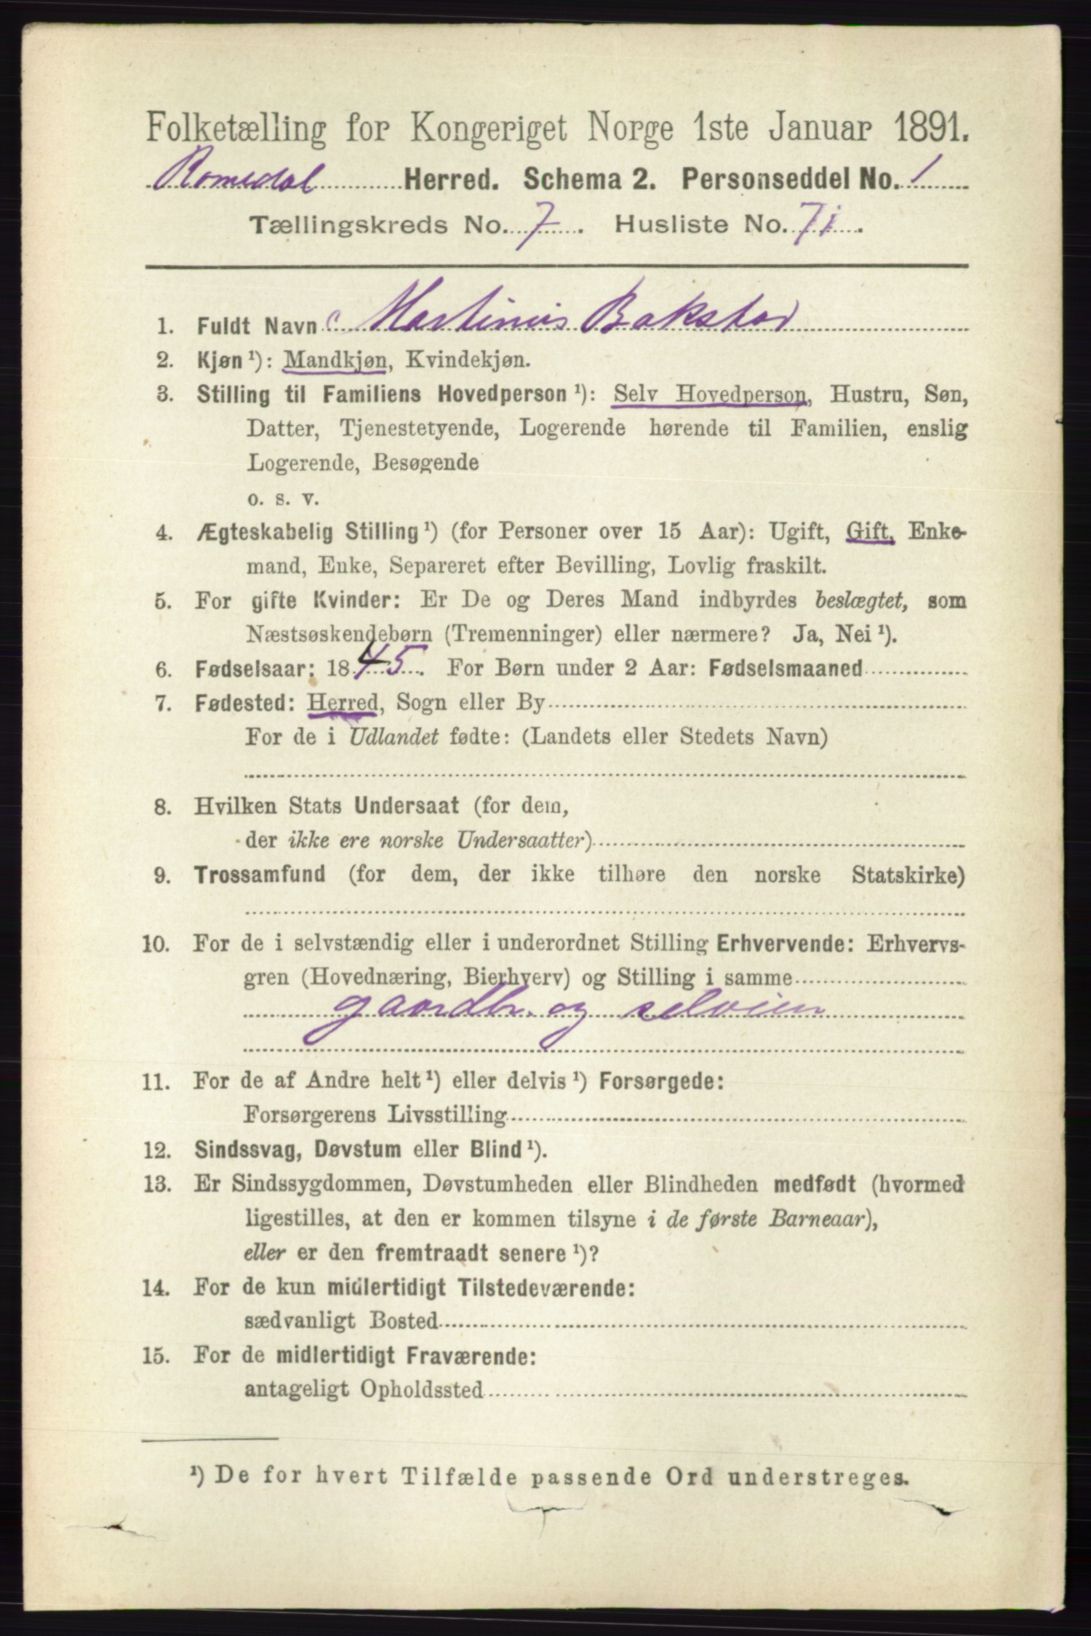 Folketælling for Kongeriget Norge 1ste Januar 1891.
Romedal Herred. Schema 2. Personseddel No. 1
Tællingskreds No. 7. Husliste No. 71.
1. Fuldt Navn Martinius Bakstad
2. Kjøn¹): Mandkjøn, Kvindekjøn.
3. Stilling til Familiens Hovedperson¹): Selv Hovedperson, Hustru, Søn,
Datter, Tjenestetyende, Logerende hørende til Familien, enslig
Logerende, Besøgende
o. s. v.
4. Ægteskabelig Stilling¹) (for Personer over 15 Aar): Ugift, Gift, Enke-
mand, Enke, Separeret efter Bevilling, Lovlig fraskilt.
5. For gifte Kvinder: Er De og Deres Mand indbyrdes beslægtet, som
Næstsøskendebørn (Tremenninger) eller nærmere? Ja, Nei¹).
6. Fødselsaar: 1845. For Børn under 2 Aar: Fødselsmaaned
7. Fødested: Herred, Sogn eller By
For de i Udlandet fødte: (Landets eller Stedets Navn)
8. Hvilken Stats Undersaat (for dem,
der ikke ere norske Undersaatter)
9. Trossamfund (for dem, der ikke tilhøre den norske Statskirke)
10. For de i selvstændig eller i underordnet Stilling Erhvervende: Erhvervs-
gren (Hovednæring, Bierhverv) og Stilling i samme
gaardbr. og selveier
11. For de af Andre helt¹) eller delvis¹) Forsørgede:
Forsørgerens Livsstilling
12. Sindssvag, Døvstum eller Blind¹).
13. Er Sindssygdommen, Døvstumheden eller Blindheden medfødt (hvormed
ligestilles, at den er kommen tilsyne i de første Barneaar),
eller er den fremtraadt senere¹)?
14. For de kun midlertidigt Tilstedeværende:
sædvanligt Bosted
15. For de midlertidigt Fraværende:
antageligt Opholdssted
¹) De for hvert Tilfælde passende Ord understreges.